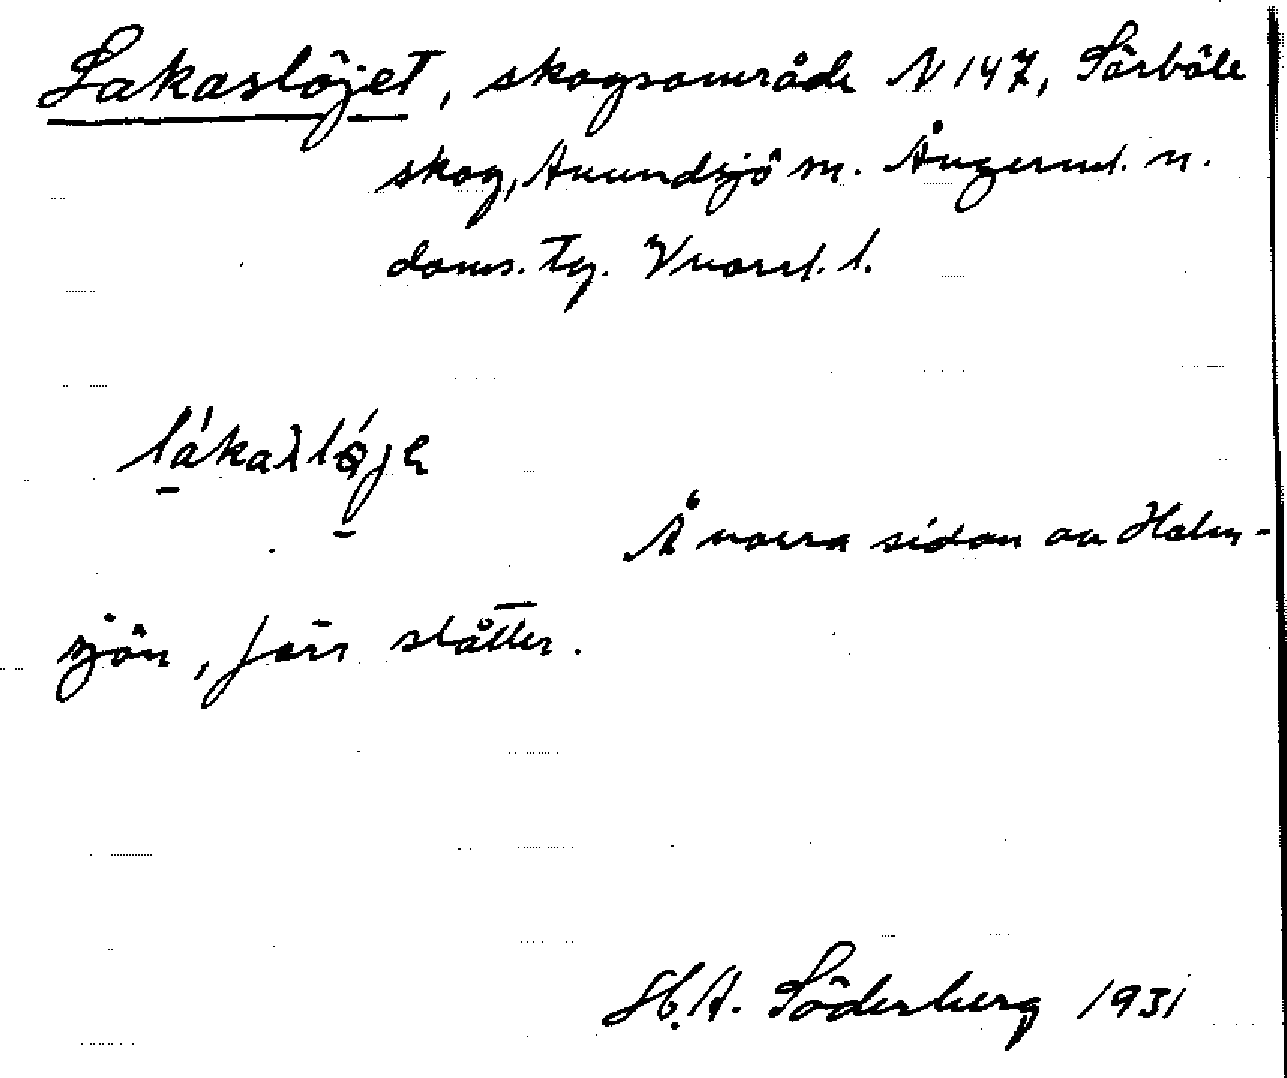 Lakaslöjet, skogsområde N 147, Sörböle
skog, Anundsjö sn. Ångerml. n.
doms. tg. Vnorrl. l.
lákaslǿje
Å norra sidan av Holm-
sjön, förr slåtter.
H. A. Söderberg 1931